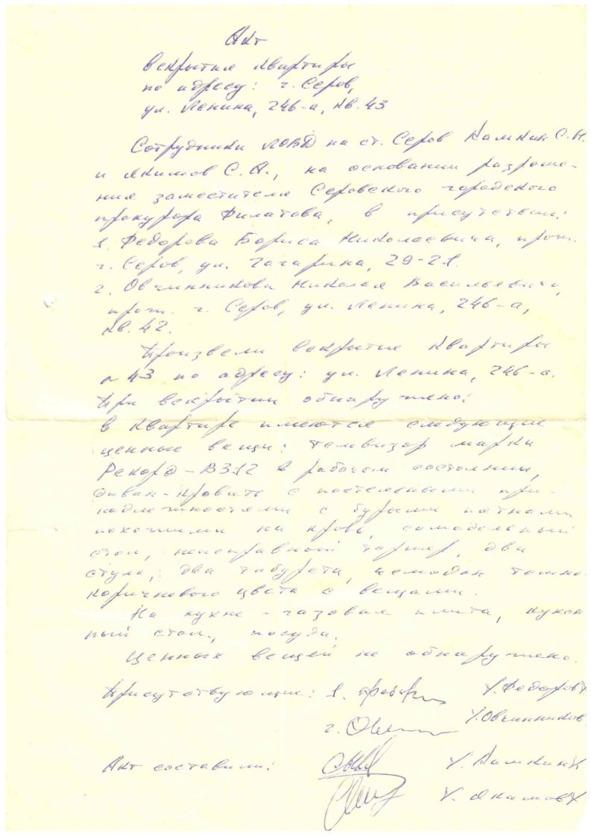 Акт
вскрытия квартиры
по адресу: г. Серов,
ул. Ленина, 246-а, кв. 43
Сотрудники ЛОВД на ст. Серов С.Н.
и Якимов С.А., на основании разреше-
ния заместителя Серовского городского
прокурора Филатова, в присутствии:
1. Федорова Бориса Николаевича, прож.
г. Серов, ул. Гагарина, 29-21.
2. Овчинникова Николая Васильевича,
прож. г. Серов, ул. Ленина, 246-а,
кв. 42.
Произвели вскрытие квартиры
№ 43 по адресу: ул. Ленина, 246-а.
При вскрытии обнаружено:
в квартире имеются следующие
ценные вещи: телевизор марки
Рекорд-В312 в рабочем состоянии,
диван-кровать с постельными при-
надлежностями с бурыми пятнами
похожими на кровь, самодельный
стол, неисправный торшер, два
стула, два табурета, чемодан темно-
коричневого цвета с вещами.
На кухне - газовая плита, кухон
ный стол, посуда.
Ценных вещей не обнаружено.
Присутствующие: 1. /Федоров/
2. /Овчинников
Акт составили:
/Якимов/